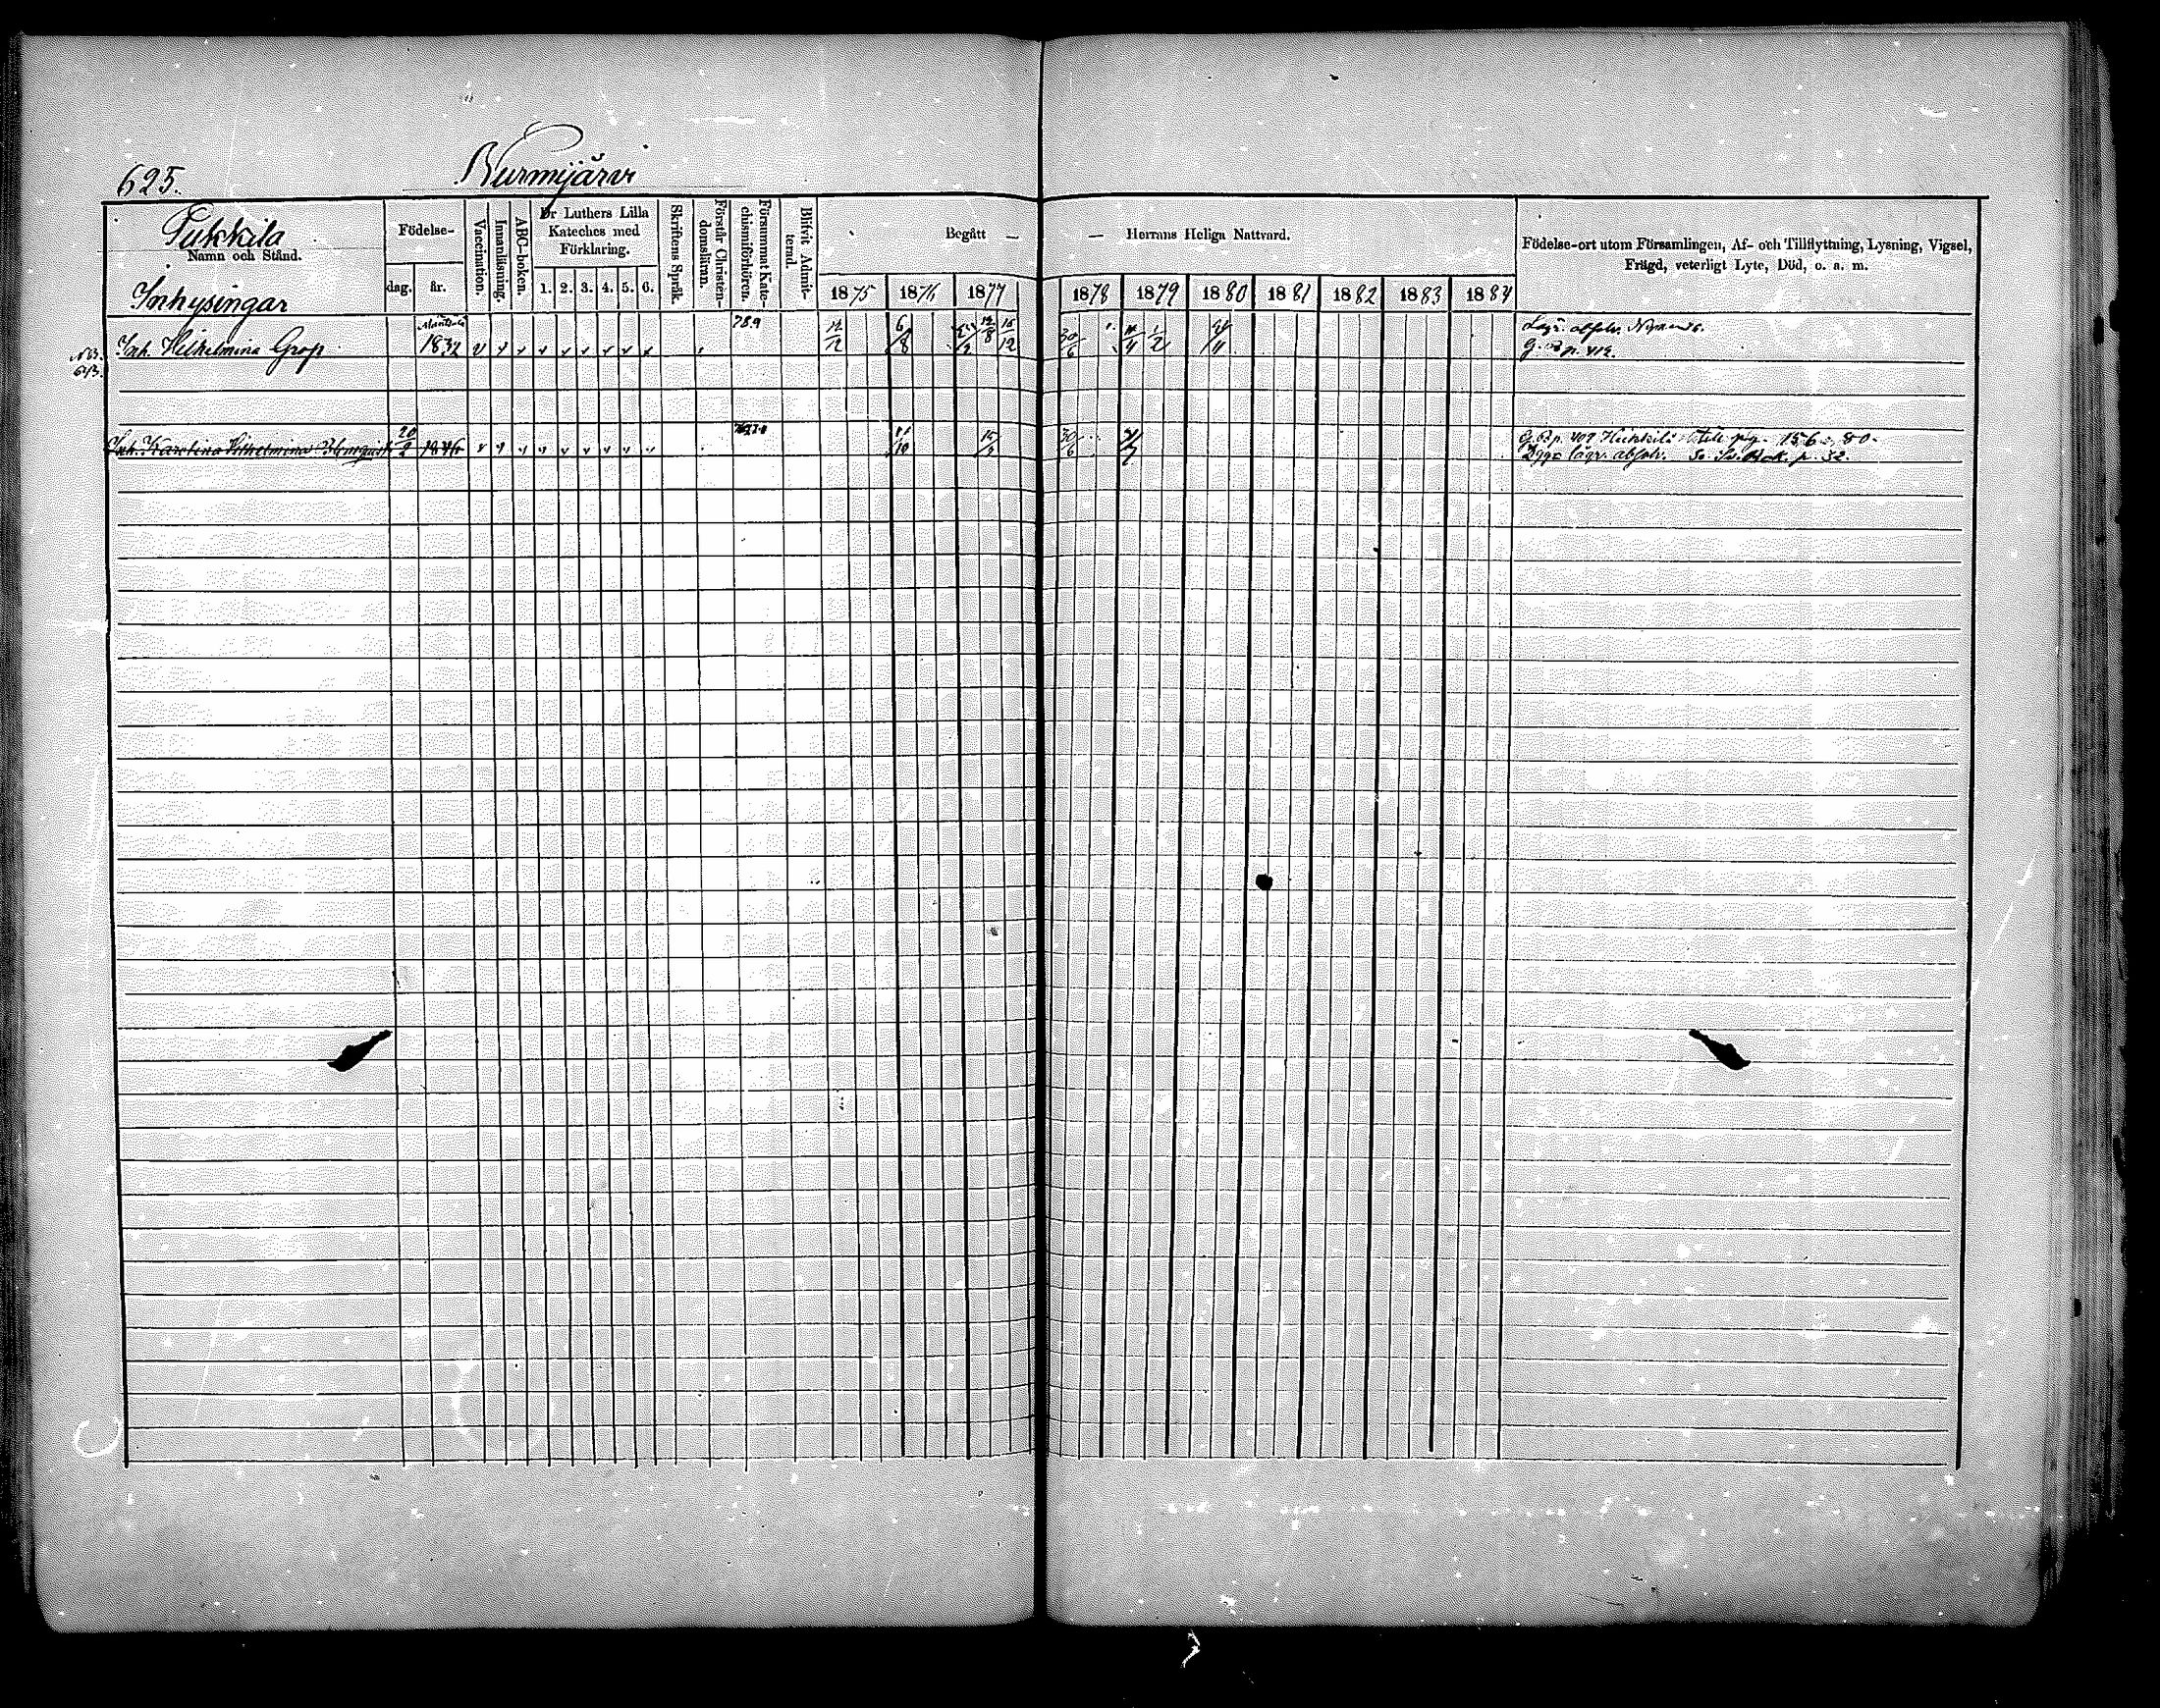 625.
Nurmijärvi
Tukkila
Namn och Stånd.
Inhysingar
Födelse-
dag.
år.
Vaccination.
Innanläsning.
ABC-boken.
Dr Luthers Lilla
Kateches med
Förklaring.
1. 2. 3. 4. 5. 6.
Skriftens Språk.
Förstår Christen-
domsläran.
Försummat Kate-
chismiförhören.
Blifvit Admit-
terad.
Begått —
— Herrans Heliga Nattvard.
1875 1876 1877 1878 1879 1880 1881 1882 1883 1884
Födelse-ort utom Församlingen, Af- och Tillflyttning, Lysning, Vigsel,
Frägd, veterligt Lyte, Död, o. a. m.
NB.
Inh. Vilhelmina Grop 1832 v v v v v v v v v 789 6/8 30/6 1/2
G. B. p. 412.
Inh. Karolina Vilhelmina Blomqvist 20/2 1846 v v v v v v v v v 30/6
G. B. p. 407 till pig. 156 80.
lägr. absolv. p. 52.